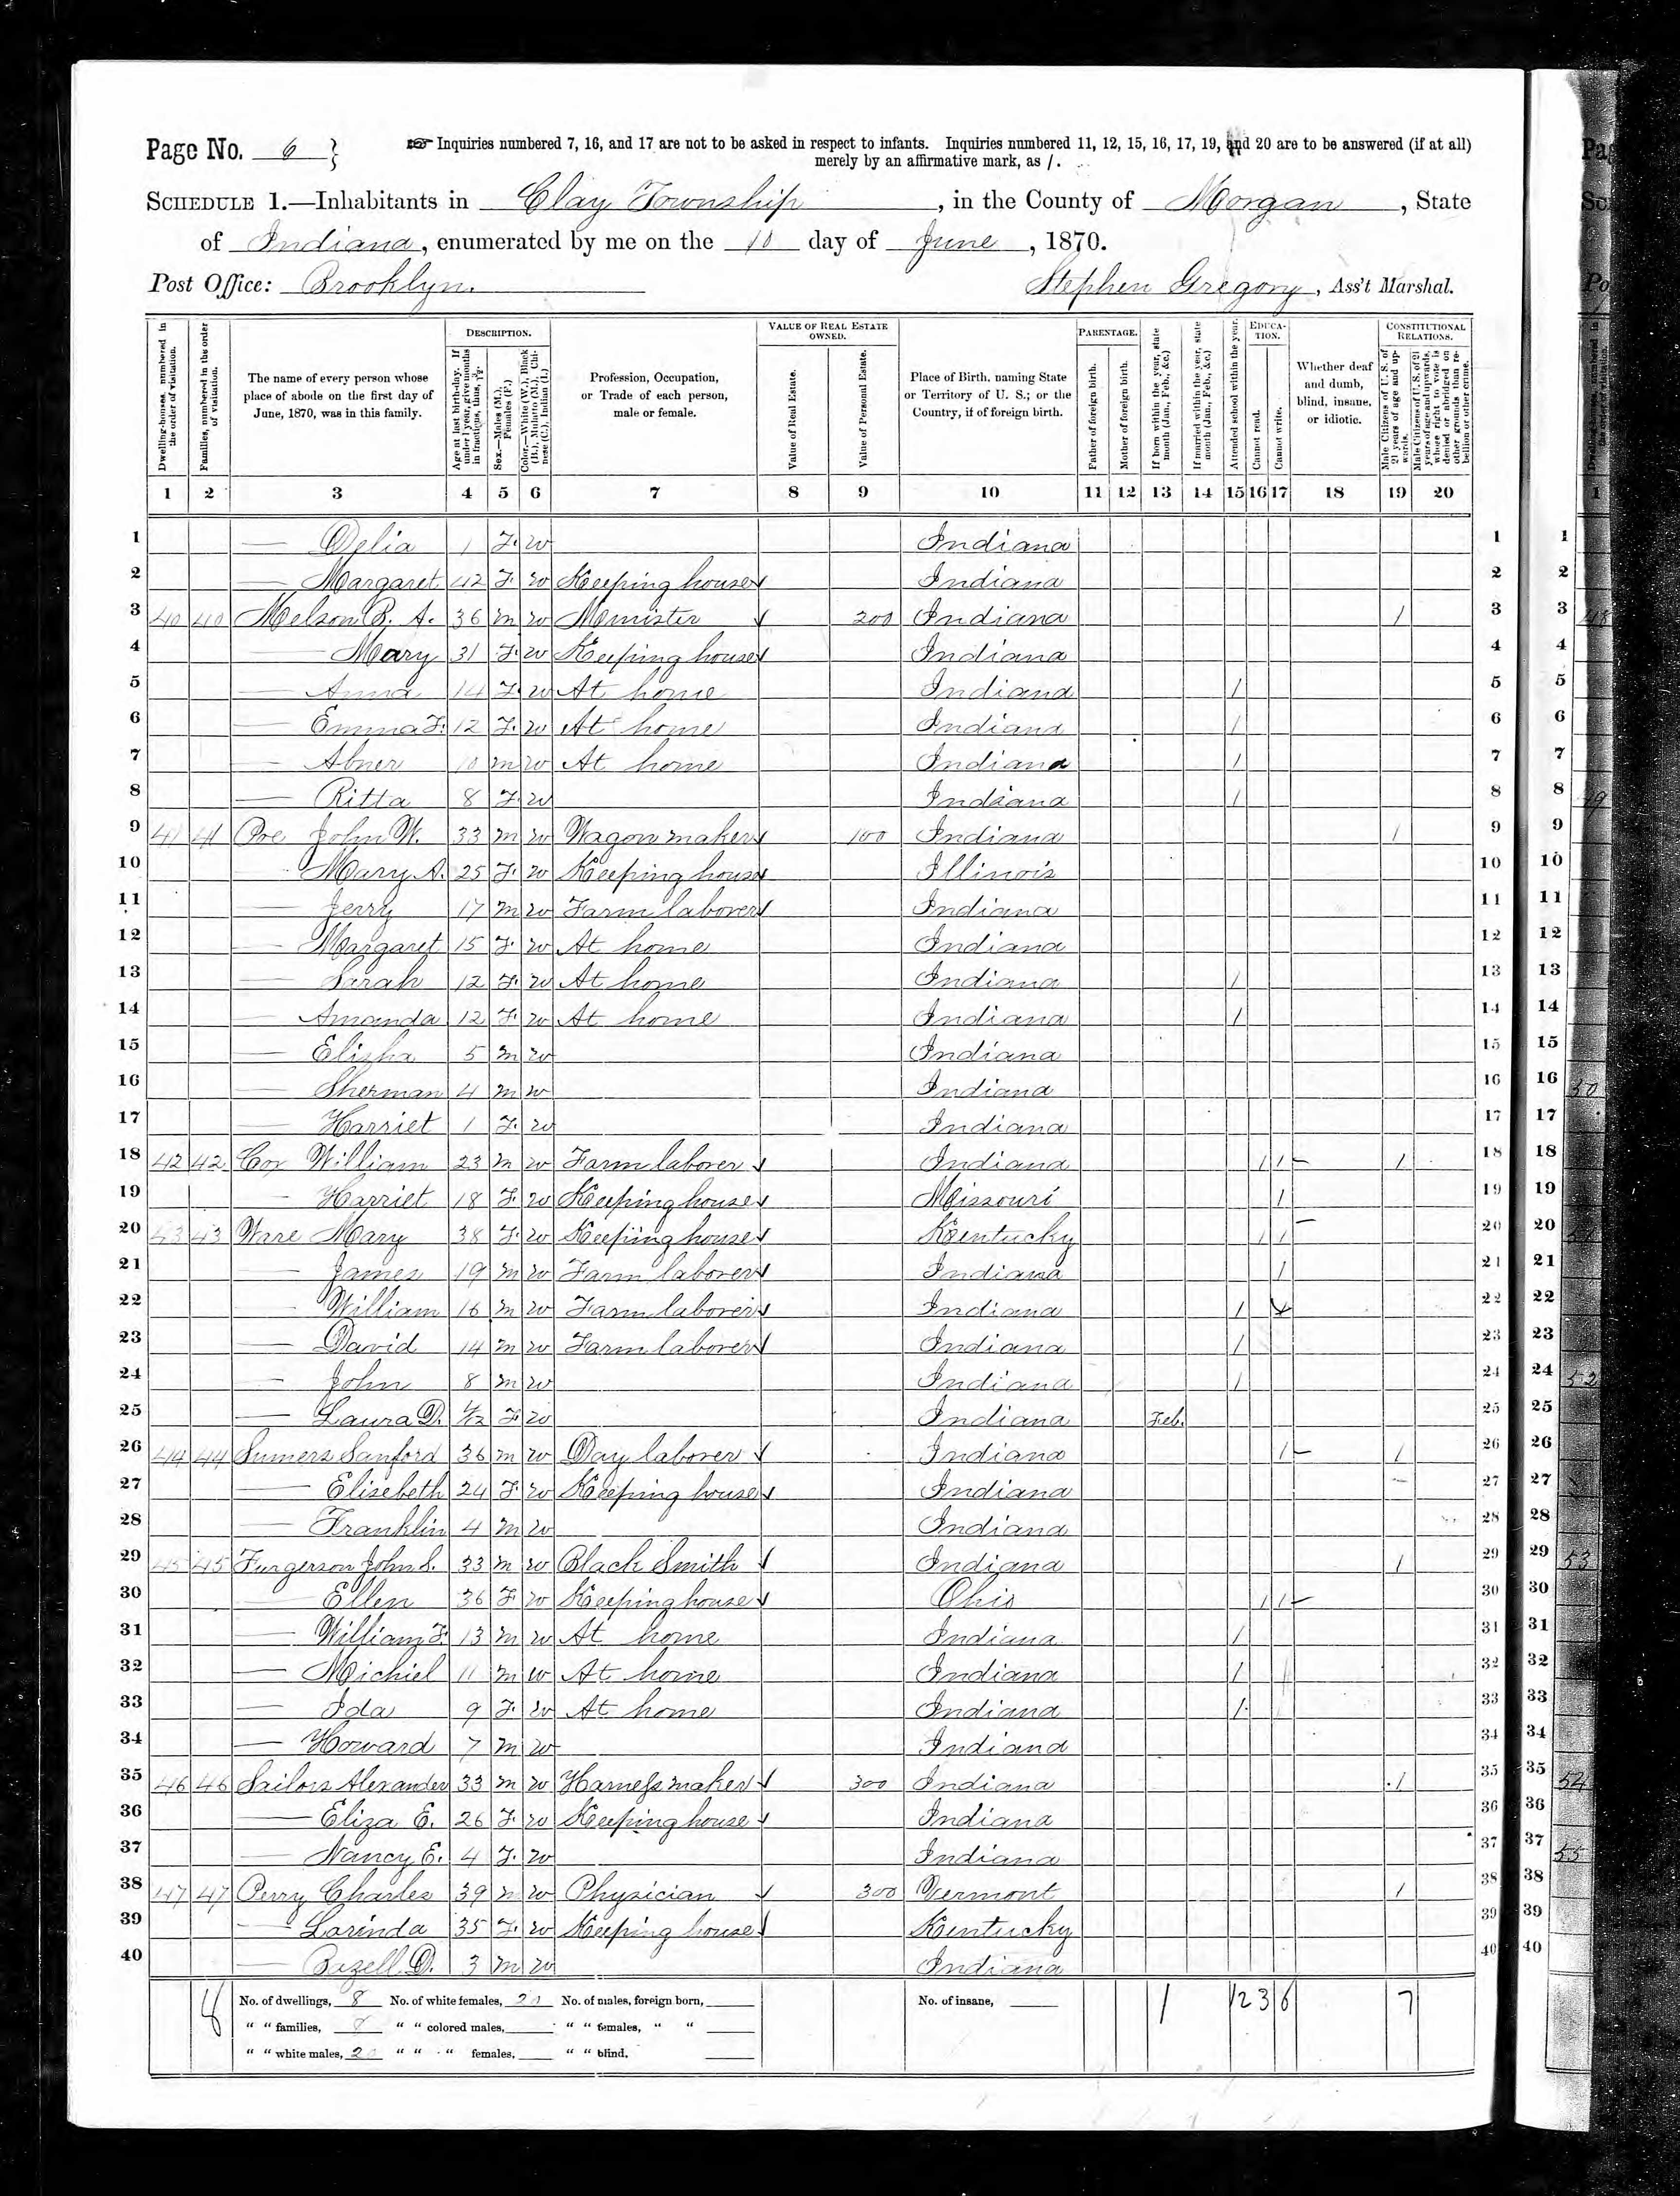 Page No. 6 }
☞ Inquiries numbered 7, 16, and 17 are not to be asked in respect to infants. Inquiries numbered 11, 12, 15, 16, 17, 19, and 20 are to be answered (if at all)
merely by an affirmative mark, as /.
SCHEDULE 1.—Inhabitants in Clay Township, in the County of Morgan, State
of Indiana, enumerated by me on the 10 day of June, 1870.
Post Office: Brooklyn. Stephen Gregory, Ass't Marshal.
Dwelling-houses, numbered in the order of visitation.
Families, numbered in the order of visitation.
The name of every person whose place of abode on the first day of June, 1870, was in this family.
DESCRIPTION.
Age at last birth-day. If under 1 year, give months in fractions, thus, 3/12.
Sex.—Males (M.), Females (F.)
Color.—White (W.), Black (B.), Mulatto (M.), Chinese (C.), Indian (I.)
Profession, Occupation, or Trade of each person, male or female.
VALUE OF REAL ESTATE OWNED.
Value of Real Estate.
Value of Personal Estate.
Place of Birth, naming State or Territory of U. S.; or the Country, if of foreign birth.
PARENTAGE.
Father of foreign birth.
Mother of foreign birth.
If born within the year, state month (Jan., Feb., &c.)
If married within the year, state month (Jan., Feb., &c.)
Attended school within the year.
EDUCATION.
Cannot read.
Cannot write.
Whether deaf and dumb, blind, insane, or idiotic.
CONSTITUTIONAL RELATIONS.
Male Citizens of U. S. of 21 years of age and upwards.
Male Citizens of U. S. of 21 years of age and upwards, whose right to vote is denied or abridged on other grounds than rebellion or other crime.
1 2 3 4 5 6 7 8 9 10 11 12 13 14 15 16 17 18 19 20
1 — Delia 1 F. W Indiana 1
2 — Margaret 42 F. W Keeping house Indiana 2
3 40 40 Melson B. A. 36 M W Menister 200 Indiana / 3
4 — Mary 31 F. W Keeping house Indiana 4
5 — Anna 14 F. W At home Indiana / 5
6 — Emma F. 12 F. W At home Indiana / 6
7 — Abner 10 M W At home Indiana / 7
8 — Ritta 8 F. W Indiana / 8
9 41 41 Poe John W. 33 M W Wagon maker 100 Indiana / 9
10 — Mary A. 25 F. W Keeping house Illinois 10
11 — Jerry 17 M W Farm laborer Indiana 11
12 — Margaret 15 F. W At home Indiana 12
13 — Sarah 12 F. W At home Indiana / 13
14 — Amanda 12 F. W At home Indiana / 14
15 — Elisha 5 M W Indiana 15
16 — Sherman 4 M W Indiana 16
17 — Harriet 1 F. W Indiana 17
18 42 42 Cox William 23 M W Farm laborer Indiana / / / 18
19 — Harriet 18 F. W Keeping house Missouri / 19
20 43 43 Ware Mary 38 F. W Keeping house Kentucky / / 20
21 — James 19 M W Farm laborer Indiana / 21
22 — William 16 M W Farm laborer Indiana / / 22
23 — David 14 M W Farm laborer Indiana / 23
24 — John 8 M W Indiana / 24
25 — Laura D. 4/12 F W Indiana Feb. 25
26 44 44 Sumers Sanford 36 M W Day laborer Indiana / / 26
27 — Elisebeth 24 F. W Keeping house Indiana 27
28 — Franklin 4 M W Indiana 28
29 45 45 Furgerson John S. 33 M W Black Smith Indiana / 29
30 — Ellen 36 F W Keeping house Ohio / / 30
31 — William F. 13 M W At home Indiana / 31
32 — Michiel 11 M W At home Indiana / 32
33 — Ida 9 F. W At home Indiana / 33
34 — Howard 7 M W Indiana 34
35 46 46 Sailors Alexander 33 M W Harness maker 300 Indiana / 35
36 — Eliza E. 26 F. W Keeping house Indiana 36
37 — Nancy E. 4 F. W Indiana 37
38 47 47 Perry Charles 39 M W Physician 300 Vermont / 38
39 — Larinda 35 F. W Keeping house Kentucky 39
40 — Bazell D. 3 M W Indiana 40
8 No. of dwellings, 8 No. of white females, 20 No. of males, foreign born, No. of insane, 1 12 3 6 7
" " families, 8 " " colored males, " " females, " "
" " white males, 20 " " " females, " " blind,